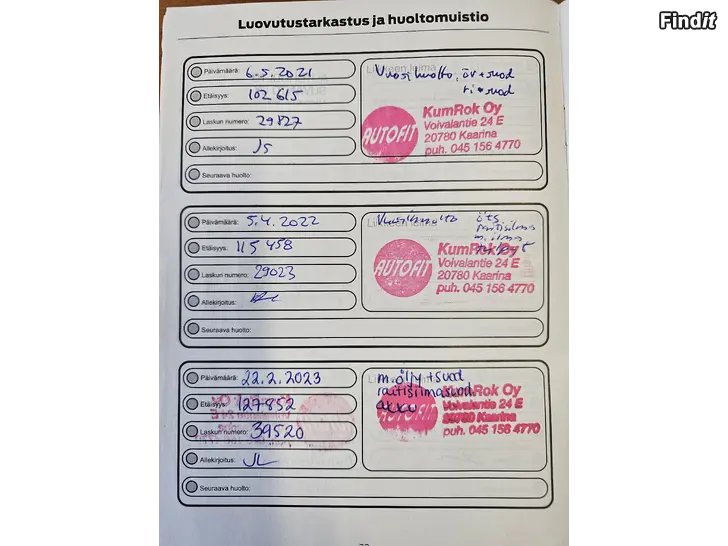 Findit
Luovutustarkastus ja huoltomuistio
Päivämäärä: 6.5.2021
Etäisyys: 102 615
Laskun numero: 29827
Allekirjoitus: JS
Seuraava huolto:
Liikkeen leima
Vuosihuolto, öv+suod
ri+suod
AUTOFIT
KumRok Oy
Voivalantie 24 E
20780 Kaarina
puh. 045 156 4770
Päivämäärä: 5.4.2022
Etäisyys: 115 458
Laskun numero: 29023
Allekirjoitus:
Seuraava huolto:
Liikkeen leima
Vuosihuolto öts
raitisilma
m.ilma
AUTOFIT
KumRok Oy
Voivalantie 24 E
20780 Kaarina
puh. 045 156 4770
Päivämäärä: 22.2.2023
Etäisyys: 127852
Laskun numero: 39520
Allekirjoitus: JL
Seuraava huolto:
m.öljy+suod
raitisilmasuod.
akku
AUTOFIT
KumRok Oy
Voivalantie 24 E
20780 Kaarina
puh. 045 156 4770